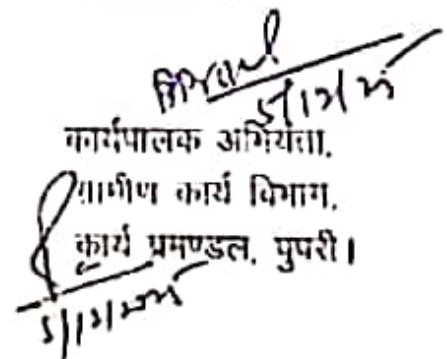 5/12/25
कार्यपालक अभियंता,
ग्रामीण कार्य विभाग,
कार्य प्रमण्डल, पुपरी।
5/12/2025